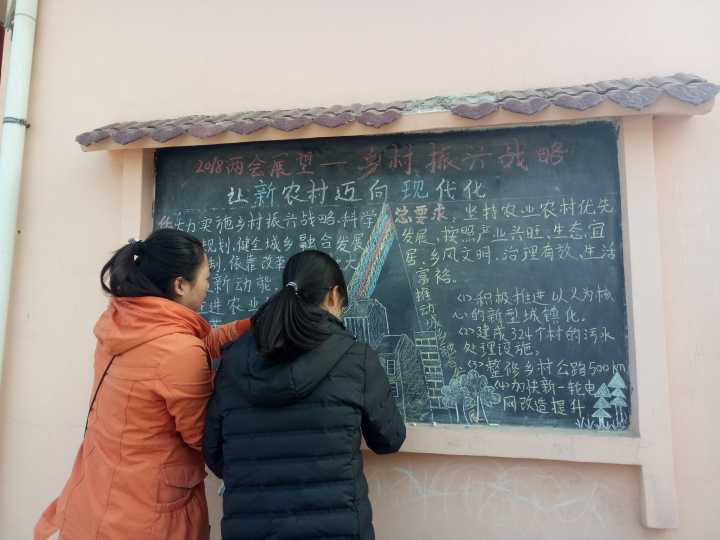 2018两会展望—乡村振兴战略
让新农村迈向现代化
任大力实施乡村振兴战略,科学
规划,健全城乡融合发展
制,依靠改
新动能,
进农业
总要求,坚持农业农村优先
发展,按照产业兴旺、生态宜
居、乡风文明、治理有效、生活
富裕。
推动
(1)积极推进以人为核
心的新型城镇化。
(2)建成324个村的污水
处理设施。
(3)整修乡村公路500km
(4)加快新一轮电
网改造提升